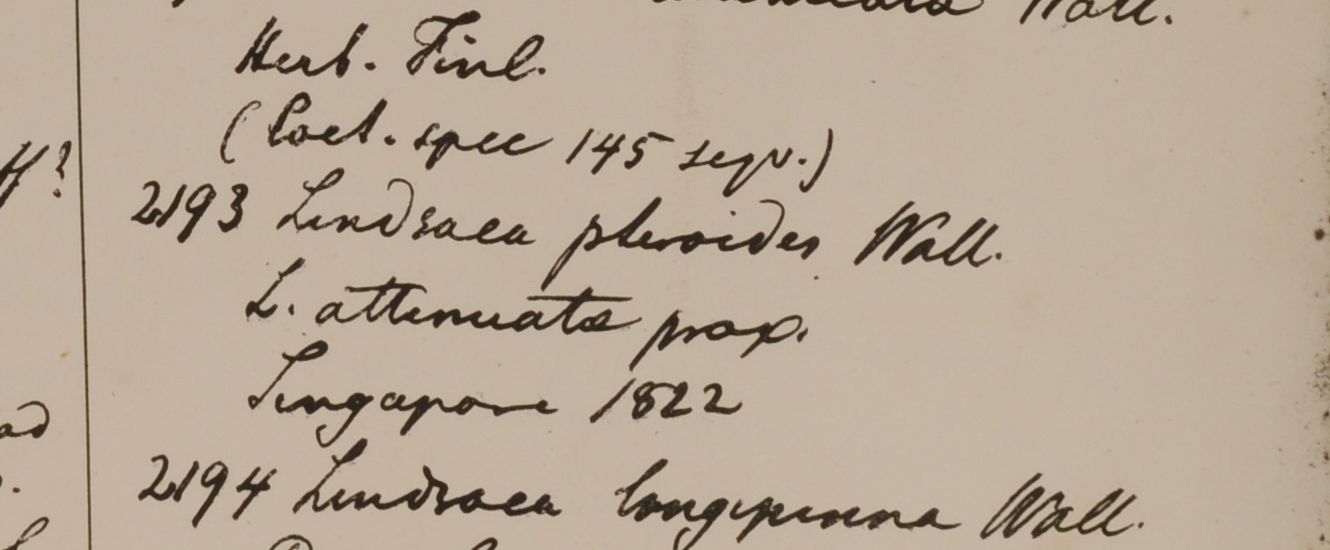 Wall.
Herb. Finl.
(Coet. spec 145 seqv.)
H?
2193 Lindsaea pteroides Wall.
L. attenuata prox.
Singapore 1822
2194 Lindsaea longipinna Wall.